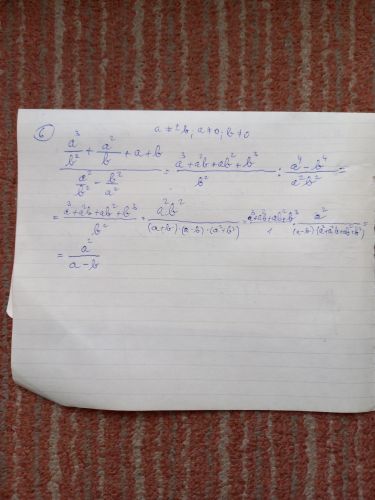 6 a ≠ ± b, a ≠ 0, b ≠ 0
(a³/b² + a²/b + a + b) / (a²/b² - b²/a²) = (a³ + a²b + ab² + b³)/b² : (a⁴ - b⁴)/(a²b²) =
= (a³ + a²b + ab² + b³)/b² · a²b²/((a+b)·(a-b)·(a²+b²)) = (a³ + a²b + ab² + b³)/1 · a²/((a-b)(a³+a²b+ab²+b³)) =
= a²/(a - b)